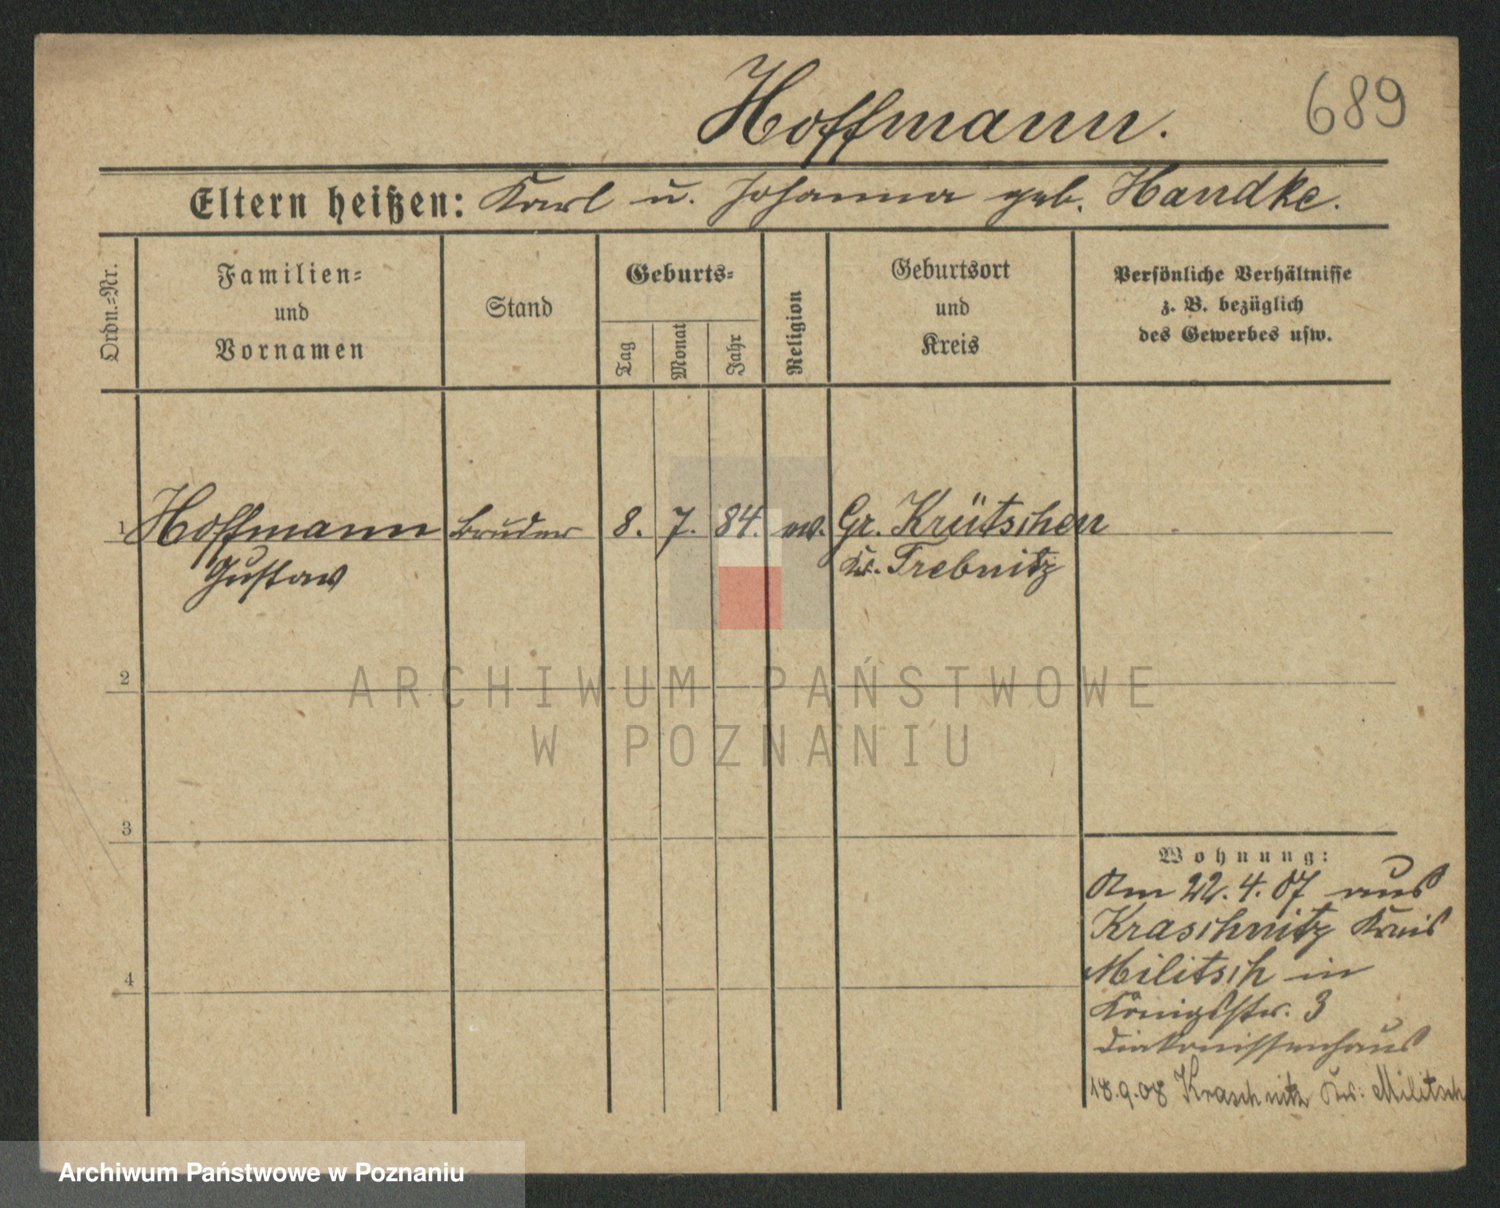 689
Hoffmann.
Eltern heißen: Karl u. Johanna geb. Handke.
Ordn.=Nr.
Familien=
und
Vornamen
Stand
Geburts=
Tag
Monat
Jahr
Religion
Geburtsort
und
Kreis
Persönliche Verhältnisse
z. B. bezüglich
des Gewerbes usw.
1 Hoffmann Bruder 8. 7. 84. ev. Gr. Krütschen
Gustav Kr. Trebnitz
2
ARCHIWUM PAŃSTWOWE
W POZNANIU
3
Wohnung:
Am 22.4.07 aus
Kraschnitz Kreis
Militsch in
4
Königstr. 3
Diakonissenhaus
18.9.08 Kraschnitz Kr. Militsch
Archiwum Państwowe w Poznaniu